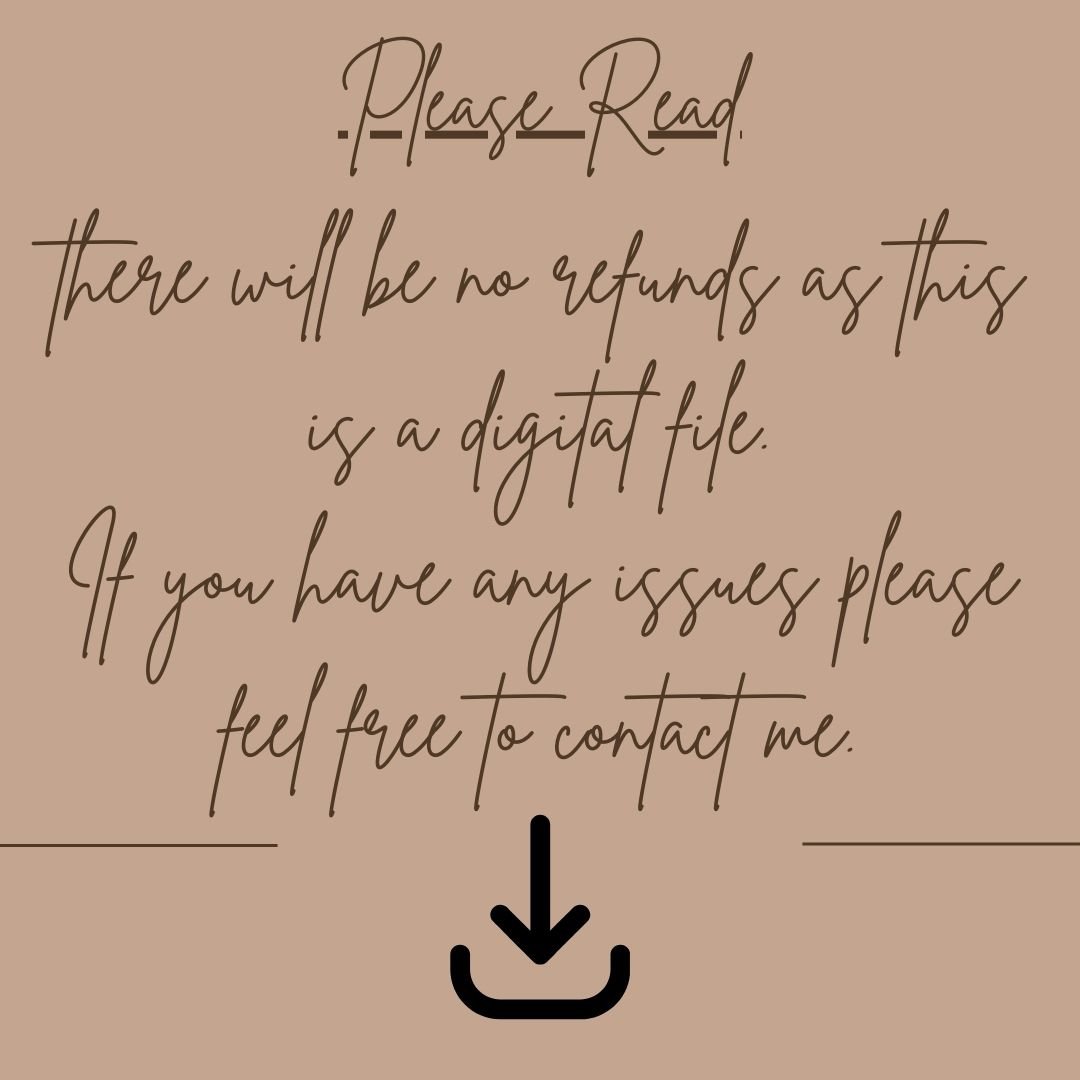 Please Read
there will be no refunds as this
is a digital file.
If you have any issues please
feel free to contact me.